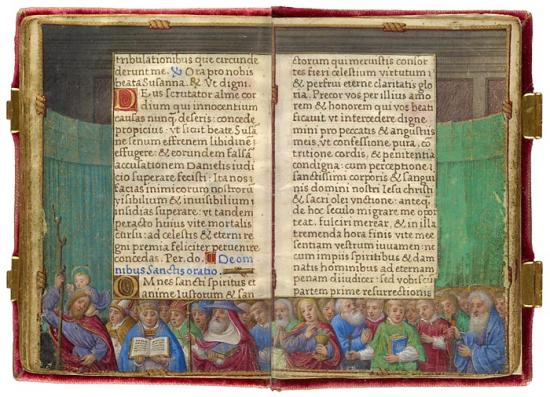 tribulationibus que circunde
derunt me. ℣ Ora pro nobis
beata Susanna. ℟ Vt digni.
DEus scrutator alme cor
dium qui innocentium
causas nunq̃ deseris: concede
propicius: vt sicut beate Susa
ne senum effrenem libidinē
effugere: & eorundem falsā
accusationem Danielis iudi
cio superare fecisti: Ita nos
facias inimicorum nostrorū
visibilium & inuisibilium
insidias superare: vt tandem
peracto huius vite mortalis
cursu: ad celestis & eterni re
gni premia feliciter peruenire
concedas. Per. do. De om
nibus Sanctis oratio.
OMnes sancti spiritus et
anime Iustorum & san
ctorum qui meruistis consor
tes fieri celestium virtutum
& perfrui eterne claritatis glo
ria. Precor vos per illius amo
rem & honorem qui vos beati
ficauit vt intercedere digne
mini pro peccatis & angustiis
meis, vt confessione pura, co
tritione cordis, & penitentia
condigna: cum perceptione
sanctissimi corporis & sangui
nis domini nostri Iesu christi
& sacri olei vnctione: anteq̃
de hoc seculo migrare, me opor
teat, fulciri merear, & in illa
tremenda hora finis vite mee
sentiam vestrum iuuamen: ne
cum impiis spiritibus & dam
natis hominibus ad eternam
penam diiudicer: sed vobiscū
partem prime resurrectionis